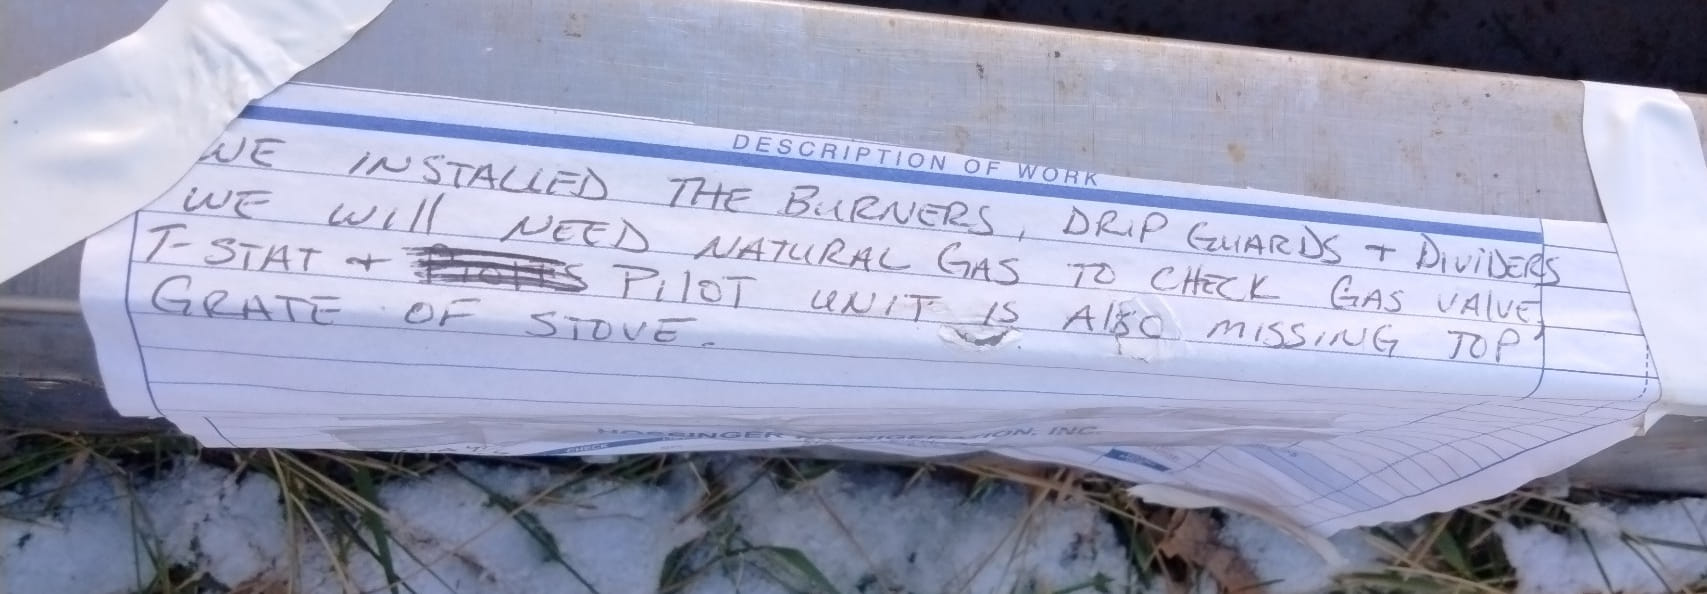 DESCRIPTION OF WORK
WE INSTALLED THE BURNERS, DRIP GUARDS + DIVIDERS
WE WIll NEED NATURAL GAS TO CHECK GAS VALVE,
T-STAT + PIlOT UNIT IS AlSO MISSING TOP
GRATE OF STOVE.
INC.
CHECK